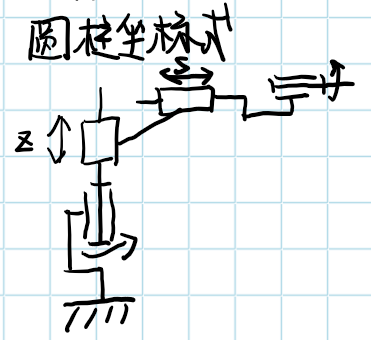 圆柱坐标式
S
z